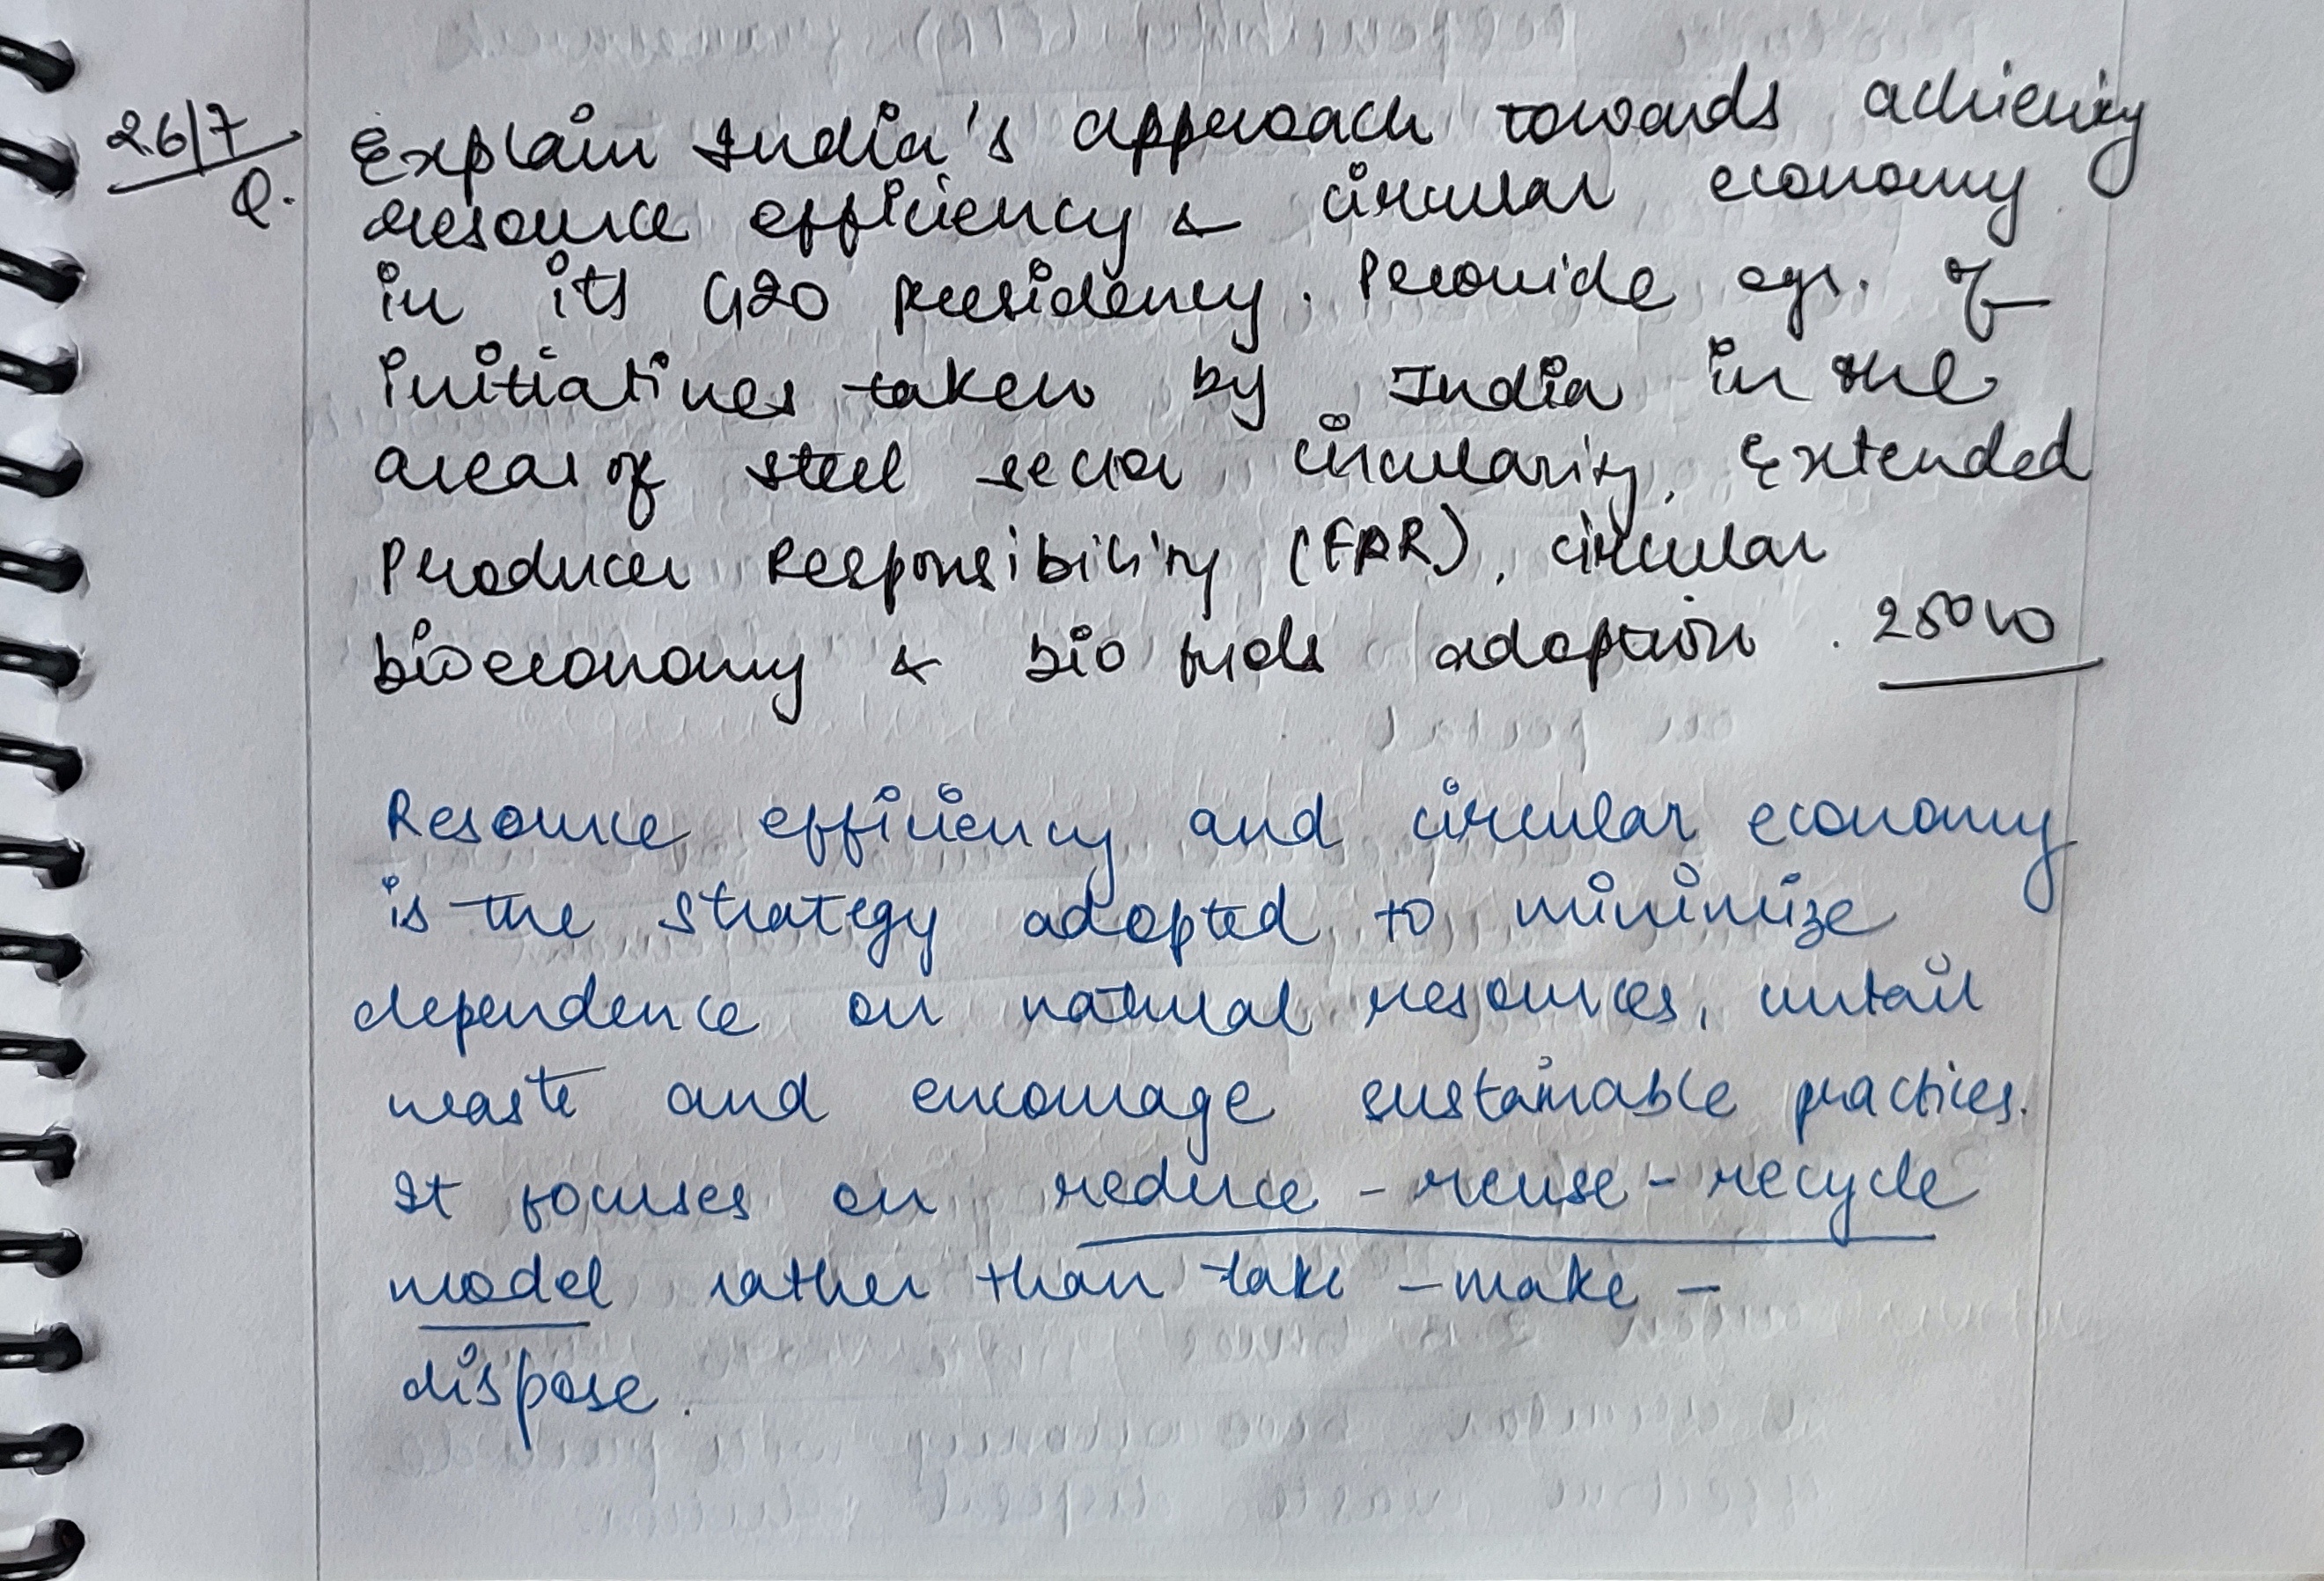 26/7
Q. Explain India's approach towards achieving
resource efficiency & circular economy
in its G20 presidency. Provide egs. of
initiatives taken by India in the
areas of steel sector circularity, Extended
Producer Responsibility (EPR), circular
bioeconomy & bio fuels adoption. 250w
Resource efficiency and circular economy
is the strategy adopted to minimize
dependence on natural resources, curtail
waste and encourage sustainable practices.
It focuses on reduce - reuse - recycle
model rather than take - make -
dispose.